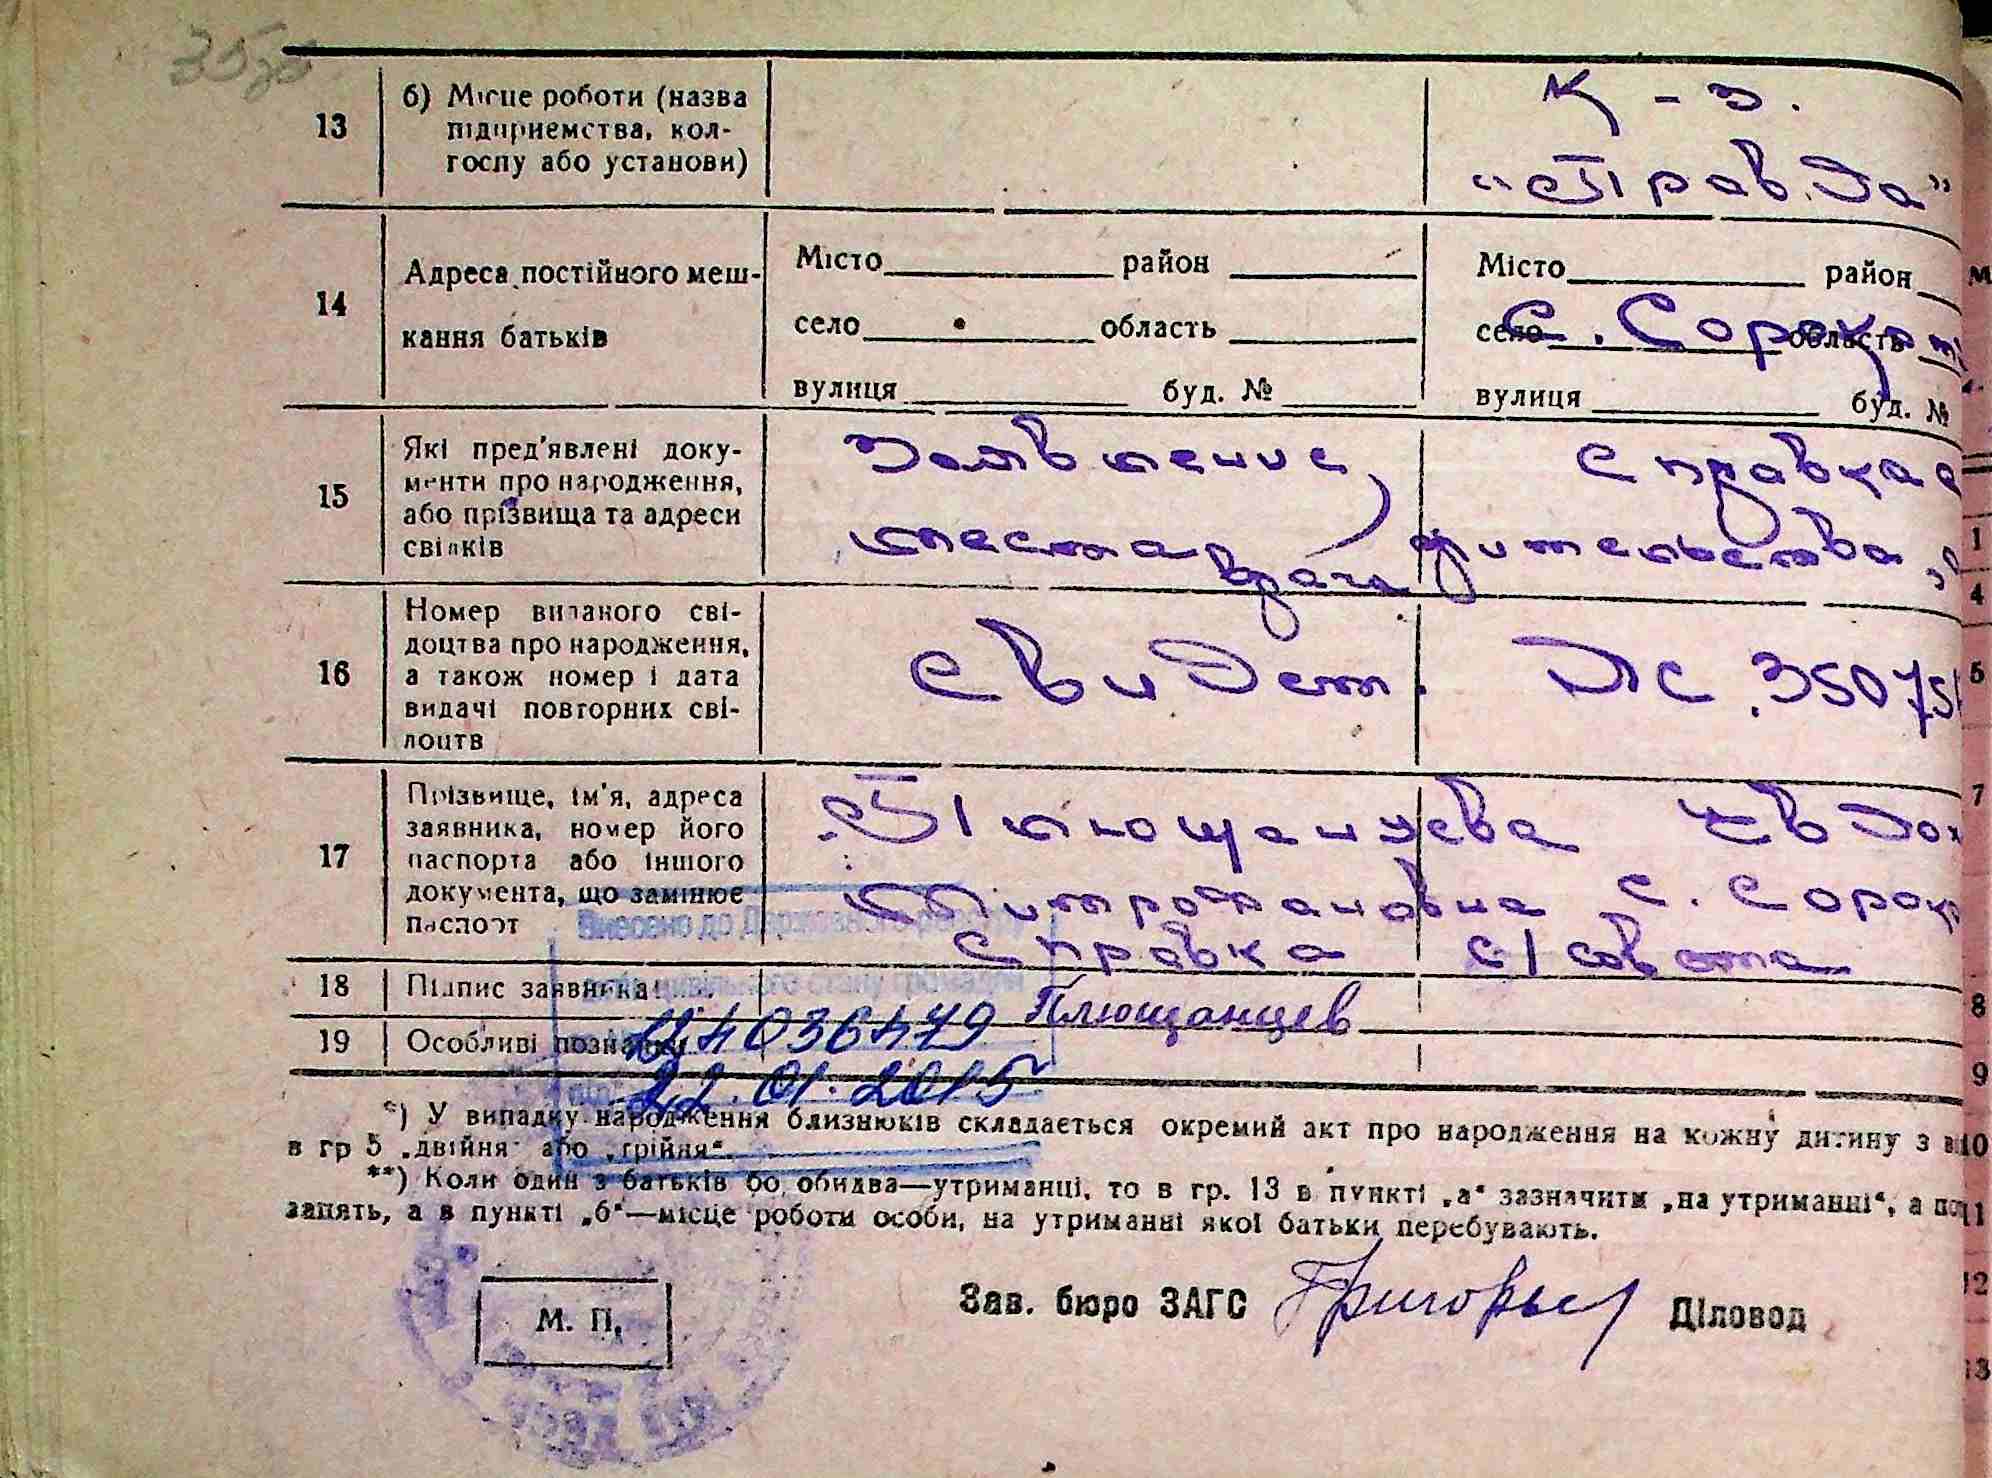 13
б) Місце роботи (назва
підприємства, кол-
госпу або установи)
К-з.
"Правда"
14
Адреса постійного меш-
кання батьків
Місто район
село область
вулиця буд. №
Місто район
село область
с. Сорок
вулиця буд. №
15
Які пред'явлені доку-
менти про народження,
або прізвища та адреси
свідків
Заявление, справка с
места жительства,
врача
16
Номер виданого сві-
доцтва про народження,
а також номер і дата
видачі повторних сві-
доцтв
Свидет. ЛС 35075
17
Прізвище, ім'я, адреса
заявника, номер його
паспорта або іншого
документа, що замінює
паспорт
Плющанцева Евдок
Митрофановна с. Сорок
Справка с/совета
Внесено до Державного реєстру
цивільного стану громадян
18
Підпис заявника
Плющанцев
19
Особливі
4036479
22.01.2015
*) У випадку народження близнюків складається окремий акт про народження на кожну дитину з
в гр 5 „двійня" або „трійня".
**) Коли один з батьків бо обидва—утриманці, то в гр. 13 в пункті „а" зазначити „на утриманні", а
запять, а в пункті „б"—місце роботи особи, на утриманні якої батьки перебувають.
М. П.
Зав. бюро ЗАГС
Діловод
1
4
5
7
8
9
10
11
12
13